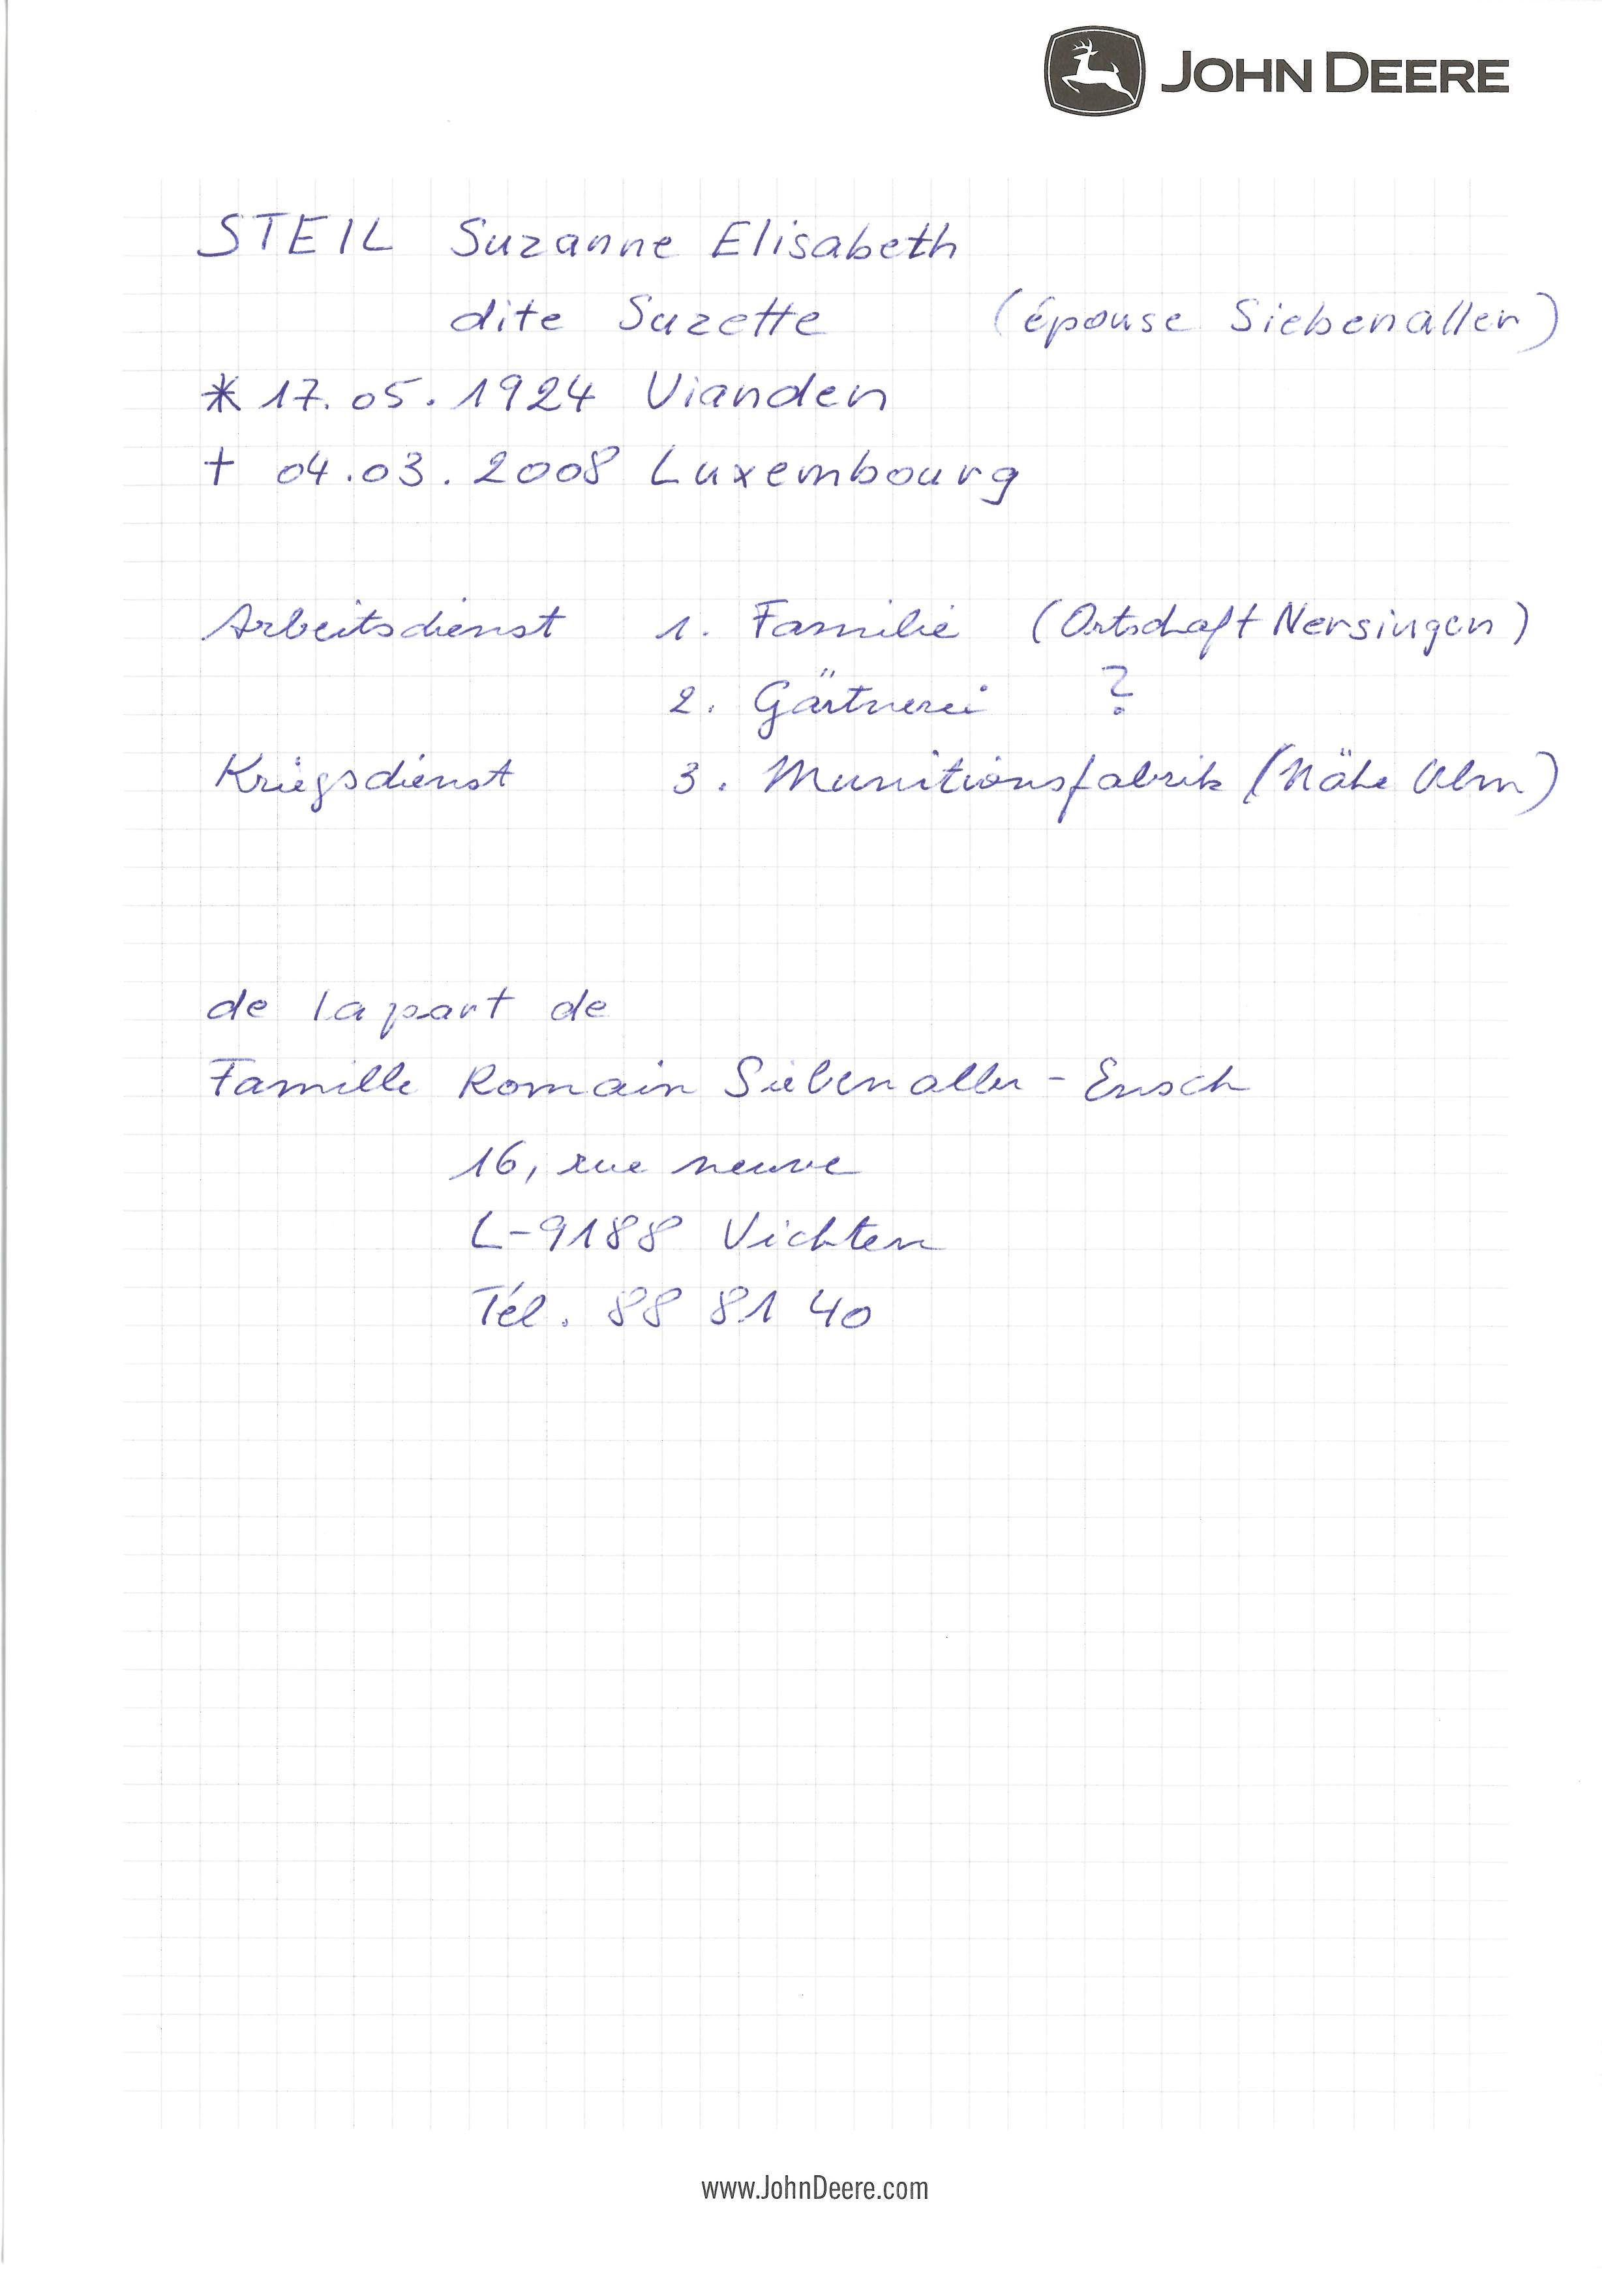 JOHN DEERE
STEIL Suzanne Elisabeth
dite Suzette (épouse Siebenaller)
* 17.05.1924 Vianden
† 04.03.2008 Luxembourg
Arbeitsdienst 1. Familie (Ortschaft Nersingen)
2. Gärtnerei ?
Kriegsdienst 3. Munitionsfabrik (Nähe Ulm)
de la part de
Famille Romain Siebenaller - Ensch
16, rue neuve
L-9188 Vichten
Tél. 88 81 40
www.JohnDeere.com